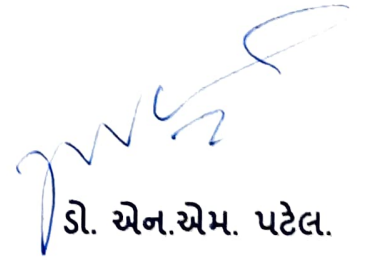 ડો. એન.એમ. પટેલ.